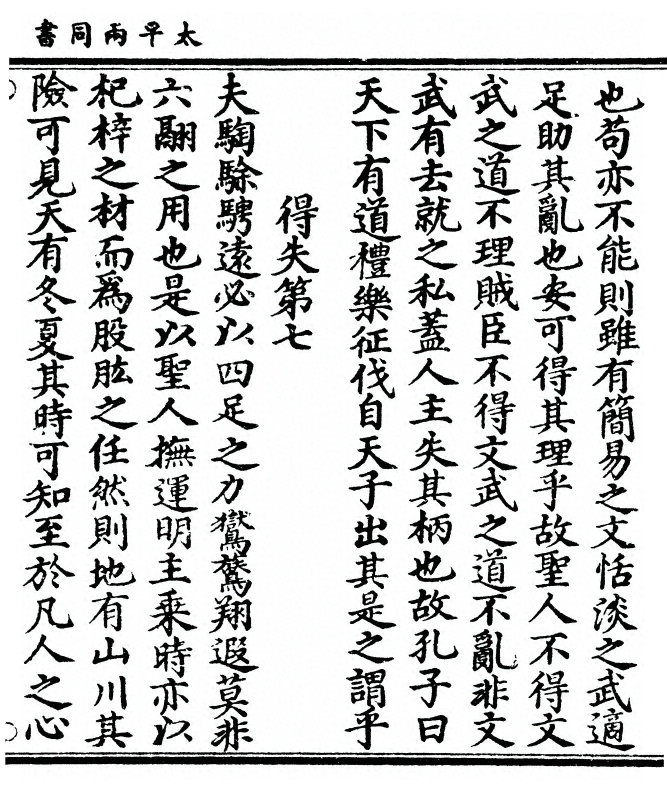 太平兩同書
也苟亦不能則雖有簡易之文恬淡之武適
足助其亂也安可得其理乎故聖人不得文
武之道不理賊臣不得文武之道不亂非文
武有去就之私蓋人主失其柄也故孔子曰
天下有道禮樂征伐自天子出其是之謂乎
得失第七
夫騊駼騁遠必以四足之力鸑鷟翔遐莫非
六翮之用也是以聖人撫運明主乗時亦以
杞梓之材而為股肱之任然則地有山川其
險可見天有冬夏其時可知至於凡人之心